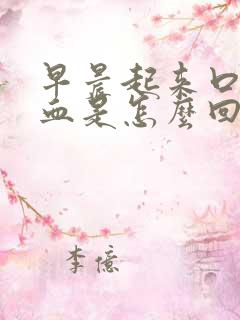 早晨起来口
血是怎麼回
李億